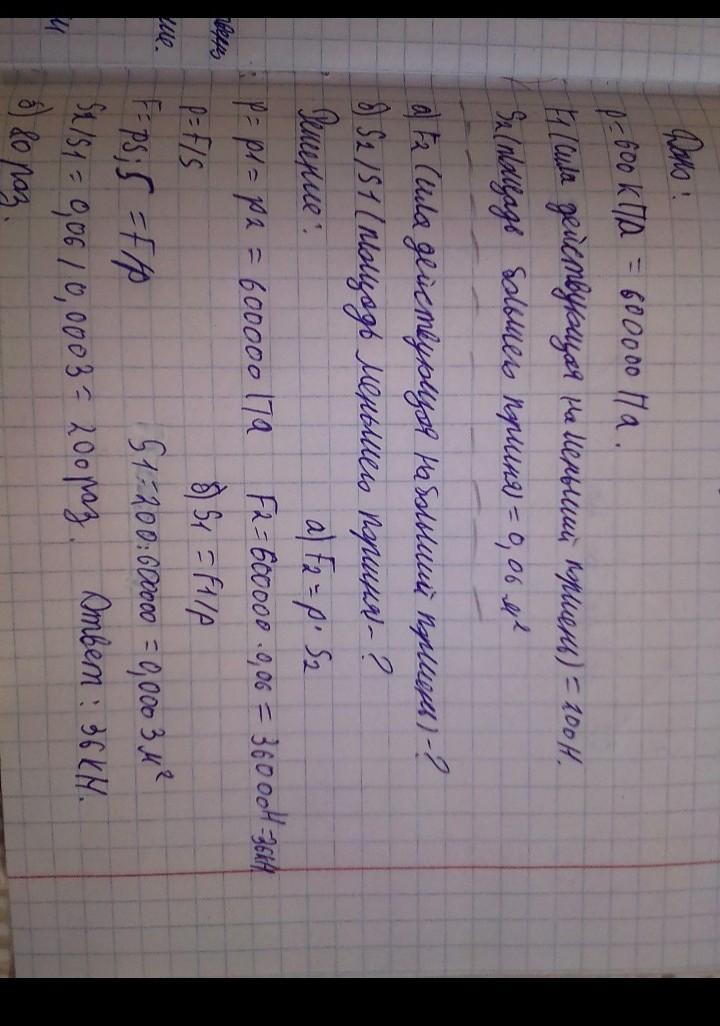 Дано:
p = 600 кПа = 600000 Па.
F1 (сила действующая на меньший поршень) = 200 Н.
S2 (площадь большего поршня) = 0,06 м²
а) F2 (сила действующая на больший поршень) - ?
б) S2/S1 (площадь меньшего поршня) - ?
Решение:
p = p1 = p2 = 600000 Па
p = F/S
F = pS; S = F/p
а) F2 = p · S2
F2 = 600000 · 0,06 = 36000 Н = 36 кН
б) S1 = F1/p
S1 = 200:600000 = 0,0003 м²
S2/S1 = 0,06 / 0,0003 = 200 раз.
Ответ: 36 кН.
б) 80 раз.